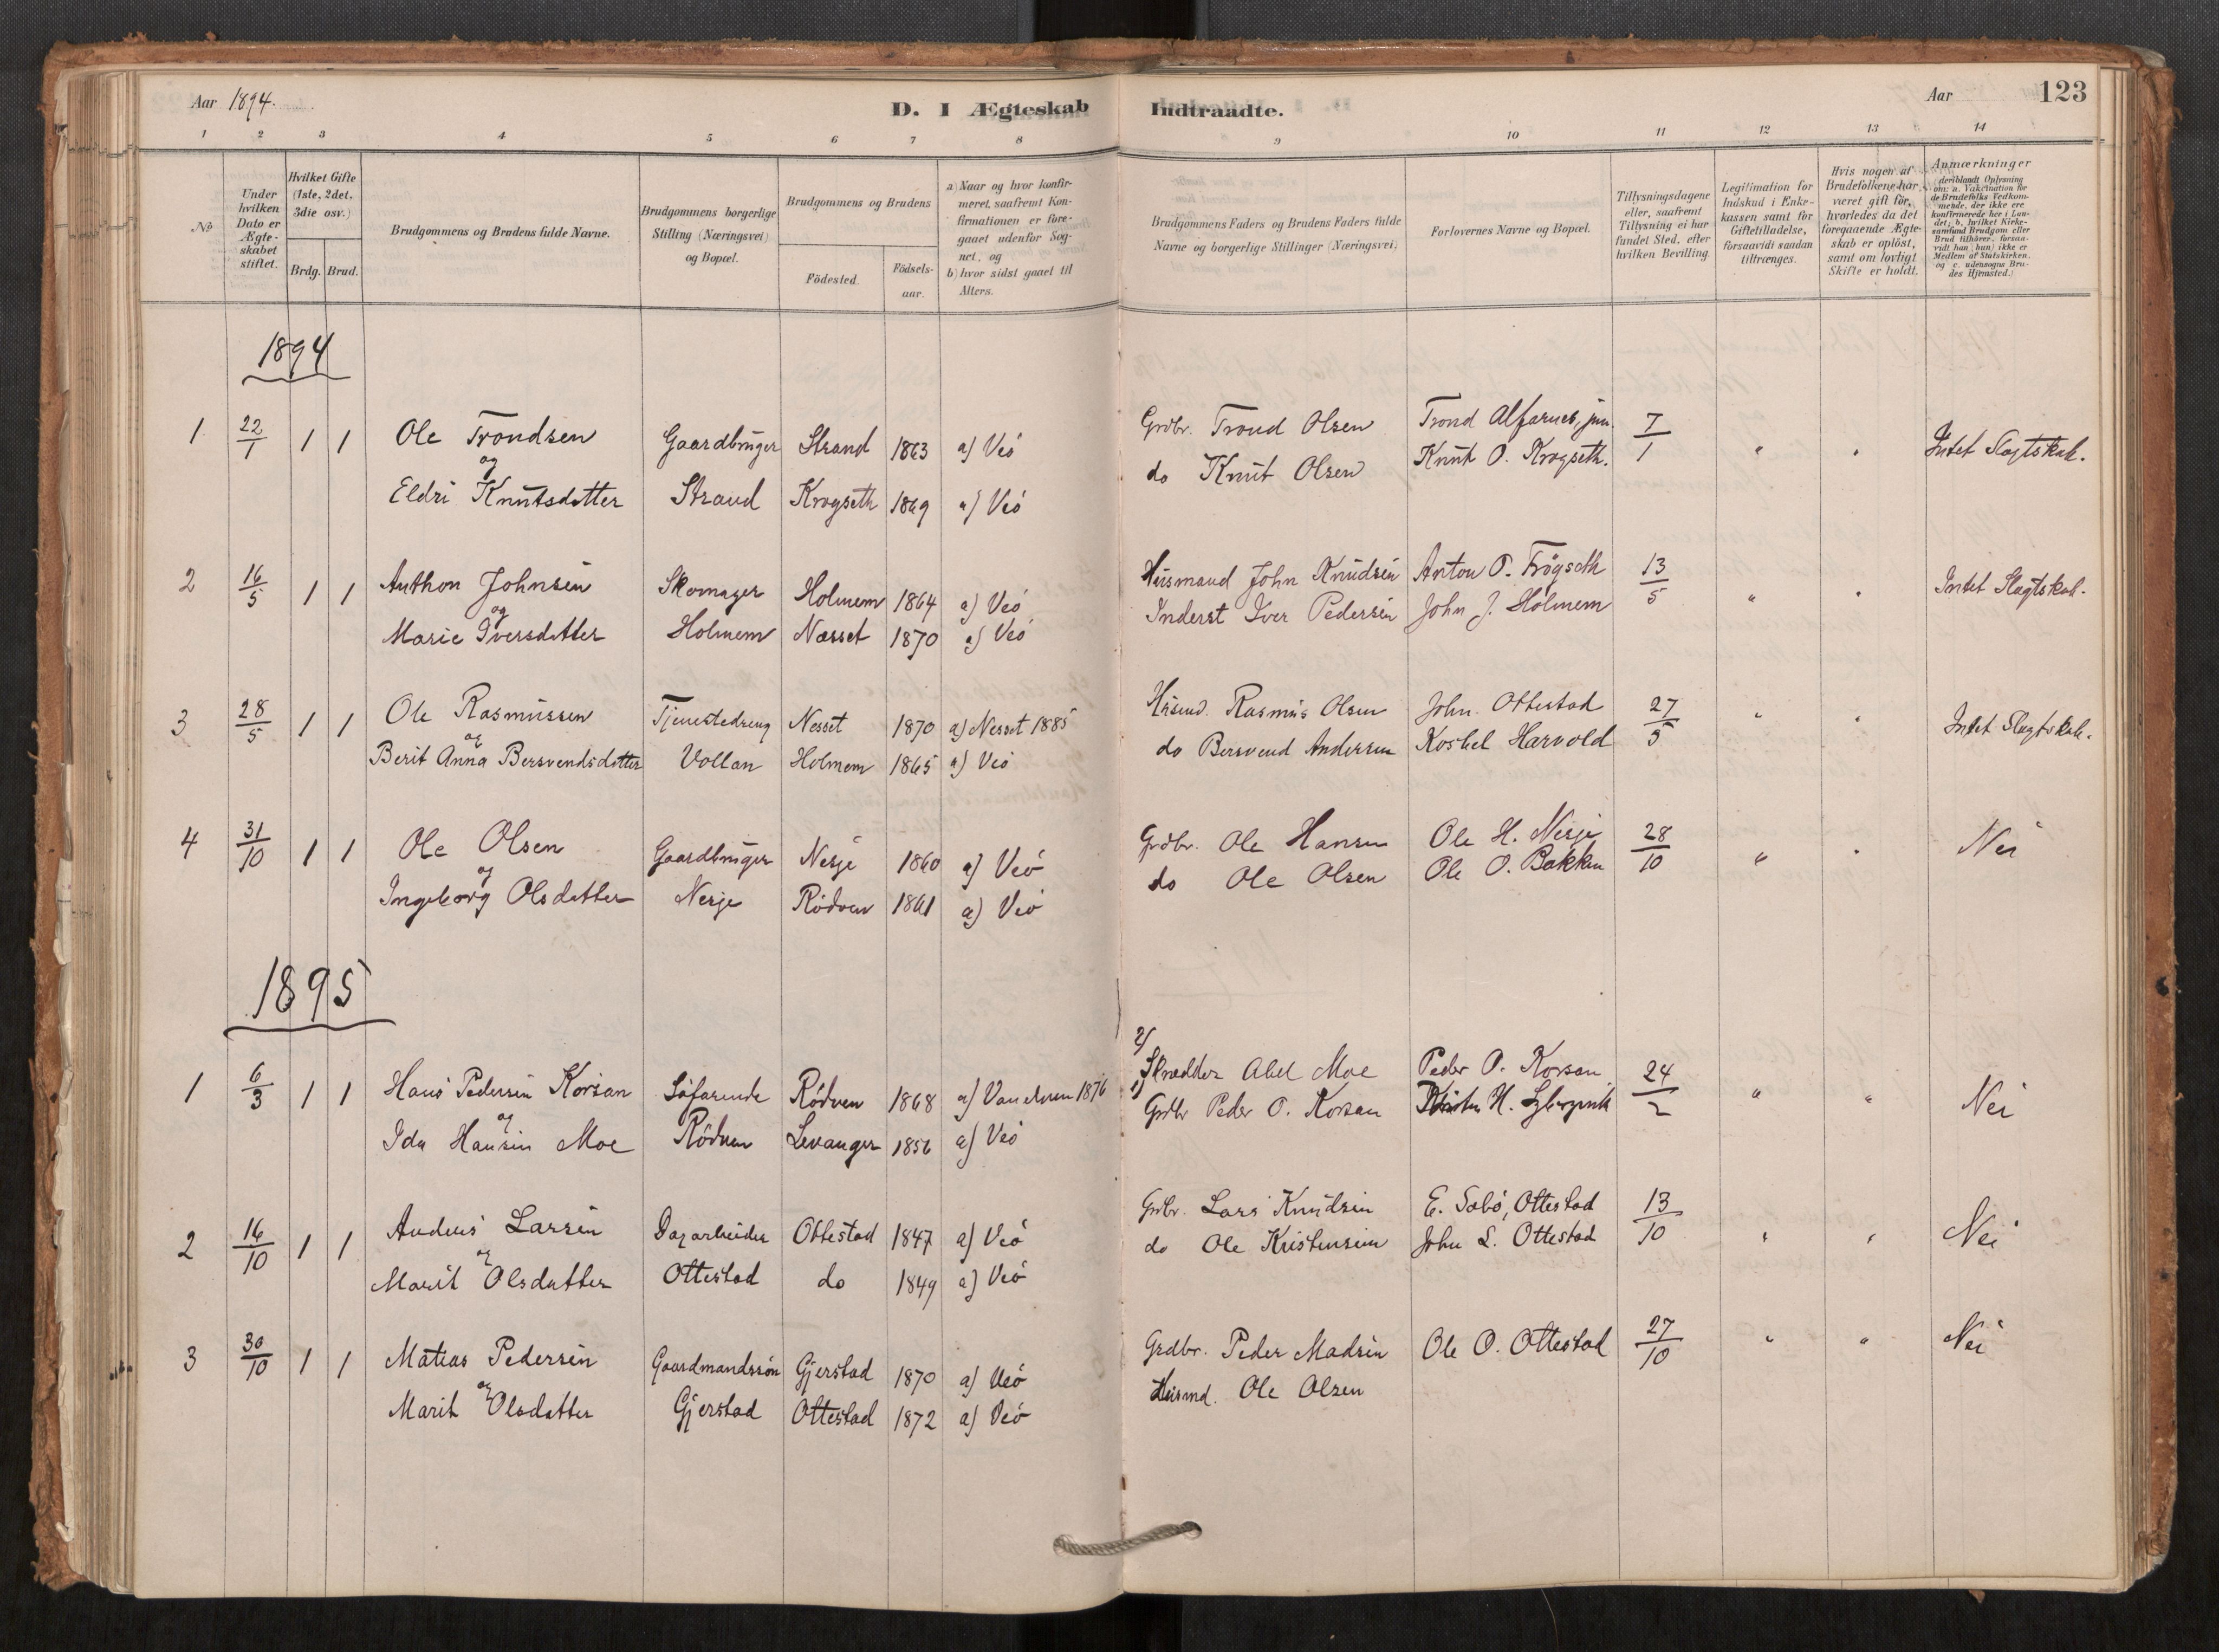 Aar 1894.
D. I Ægteskab Indtraadte.
Aar 123
1 2 3 4 5 6 7 8 9 10 11 12 13 14
No
Under hvilken Dato er Ægteskabet stiftet.
Hvilket Gifte (1ste, 2det, 3die osv.)
Brdg. Brud.
Brudgommens og Brudens fulde Navne.
Brudgommens borgerlige Stilling (Næringsvei) og Bopæl.
Brudgommens og Brudens
Födested.
Födsels-aar.
a) Naar og hvor konfirmeret, saafremt Konfirmationen er foregaaet udenfor Sognet, og
b) hvor sidst gaaet til Alters.
Brudgommens Faders og Brudens Faders fulde Navne og borgerlige Stillinger (Næringsvei)
Forlovernes Navne og Bopæl.
Tillysningsdagene eller, saafremt Tillysning ei har fundet Sted, efter hvilken Bevilling.
Legitimation for Indskud i Enkekassen samt for Giftetilladelse, forsaavidt saadan tiltrænges.
Hvis nogen af Brudefolkene har været gift før, hvorledes da det foregaaende Ægteskab er oplöst, samt om lovligt Skifte er holdt.
Anmærkninger (deriblandt Oplysning om: a. Vakcination for de Brudefolks Vedkommende, der ikke ere konfirmerede her i Landet; b. hvilket Kirkesamfund Brudgom eller Brud tilhører, forsaavidt han (hun) ikke er Medlem af Statskirken, og c. udensogns Brudes Hjemsted.)
1894
1 22/1 1 1 Ole Trondsen Gaardbruger Strand 1863 a) Veö Grdbr. Trond Olsen Trond Alfarnes, jun. 7/1 " " Intet Slægtskab.
og
Eldri Knutsdatter Strand Krogseth 1869 a) Veö do Knut Olsen Knut O. Krogseth.
2 16/5 1 1 Anthon Johnsen Skomager Holmem 1864 a) Veö Husmand John Knudsen Anton P. Frøyseth 13/5 " " Intet Slægtskab.
og
Marie Iversdatter Holmem Næsset 1870 a) Veö Inderst Iver Pedersen John J. Holmem
3 28/5 1 1 Ole Rasmussen Tjenestedreng Nesset 1870 a) Nesset 1885 Husmd. Rasmus Olsen John Ottestad 27/5 " " Intet Slægtskab.
og
Berit Anna Bersvendsdatter Vollan Holmem 1865 a) Veö do Bersvend Andersen Harvold
4 31/10 1 1 Ole Olsen Gaardbruger Nesje 1860 a) Veö Grdbr. Ole Hansen Ole H. Nesje 28/10 " " Nei
og
Ingeborg Olsdatter Nesje Rödven 1861 a) Veö do Ole Olsen Ole O. Bakken
1895
1 6/3 1 1 Hans Pedersen Korsan Söfarende Rödven 1868 a) 1876 2) Skrædder Abel Moe Peder O. Korsan 24/2 " " Nei
og
Ida Hansin Moe Rödven Levanger 1856 a) Veö 1) Grdbr Peder O. Korsan H.
2 16/10 1 1 Anders Larsen Dagarbeider Ottestad 1847 a) Veö Grdbr. Lars Knudsen E. Sæbö, Ottestad 13/10 " " Nei
og
Marit Olsdatter Ottestad do 1849 a) Veö do Ole Kristensen John L. Ottestad
3 30/10 1 1 Matias Pedersen Gaardmandssön Gjerstad 1870 a) Veö Grdbr. Peder Madsen Ole O. Ottestad 27/10 " " Nei
og
Marit Olsdatter Gjerstad Ottestad 1872 a) Veö Husmd. Ole Olsen